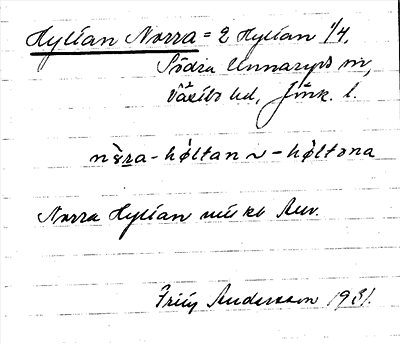 Hyltan Norra = E Hyltan 1/4,
Södra Unnaryds sn,
Västbo hd, Jönk. l.
nɷ̀ra - hø̀ltan ~ - hø̀ltəna
Norra Hyltan
Andersson 1931.